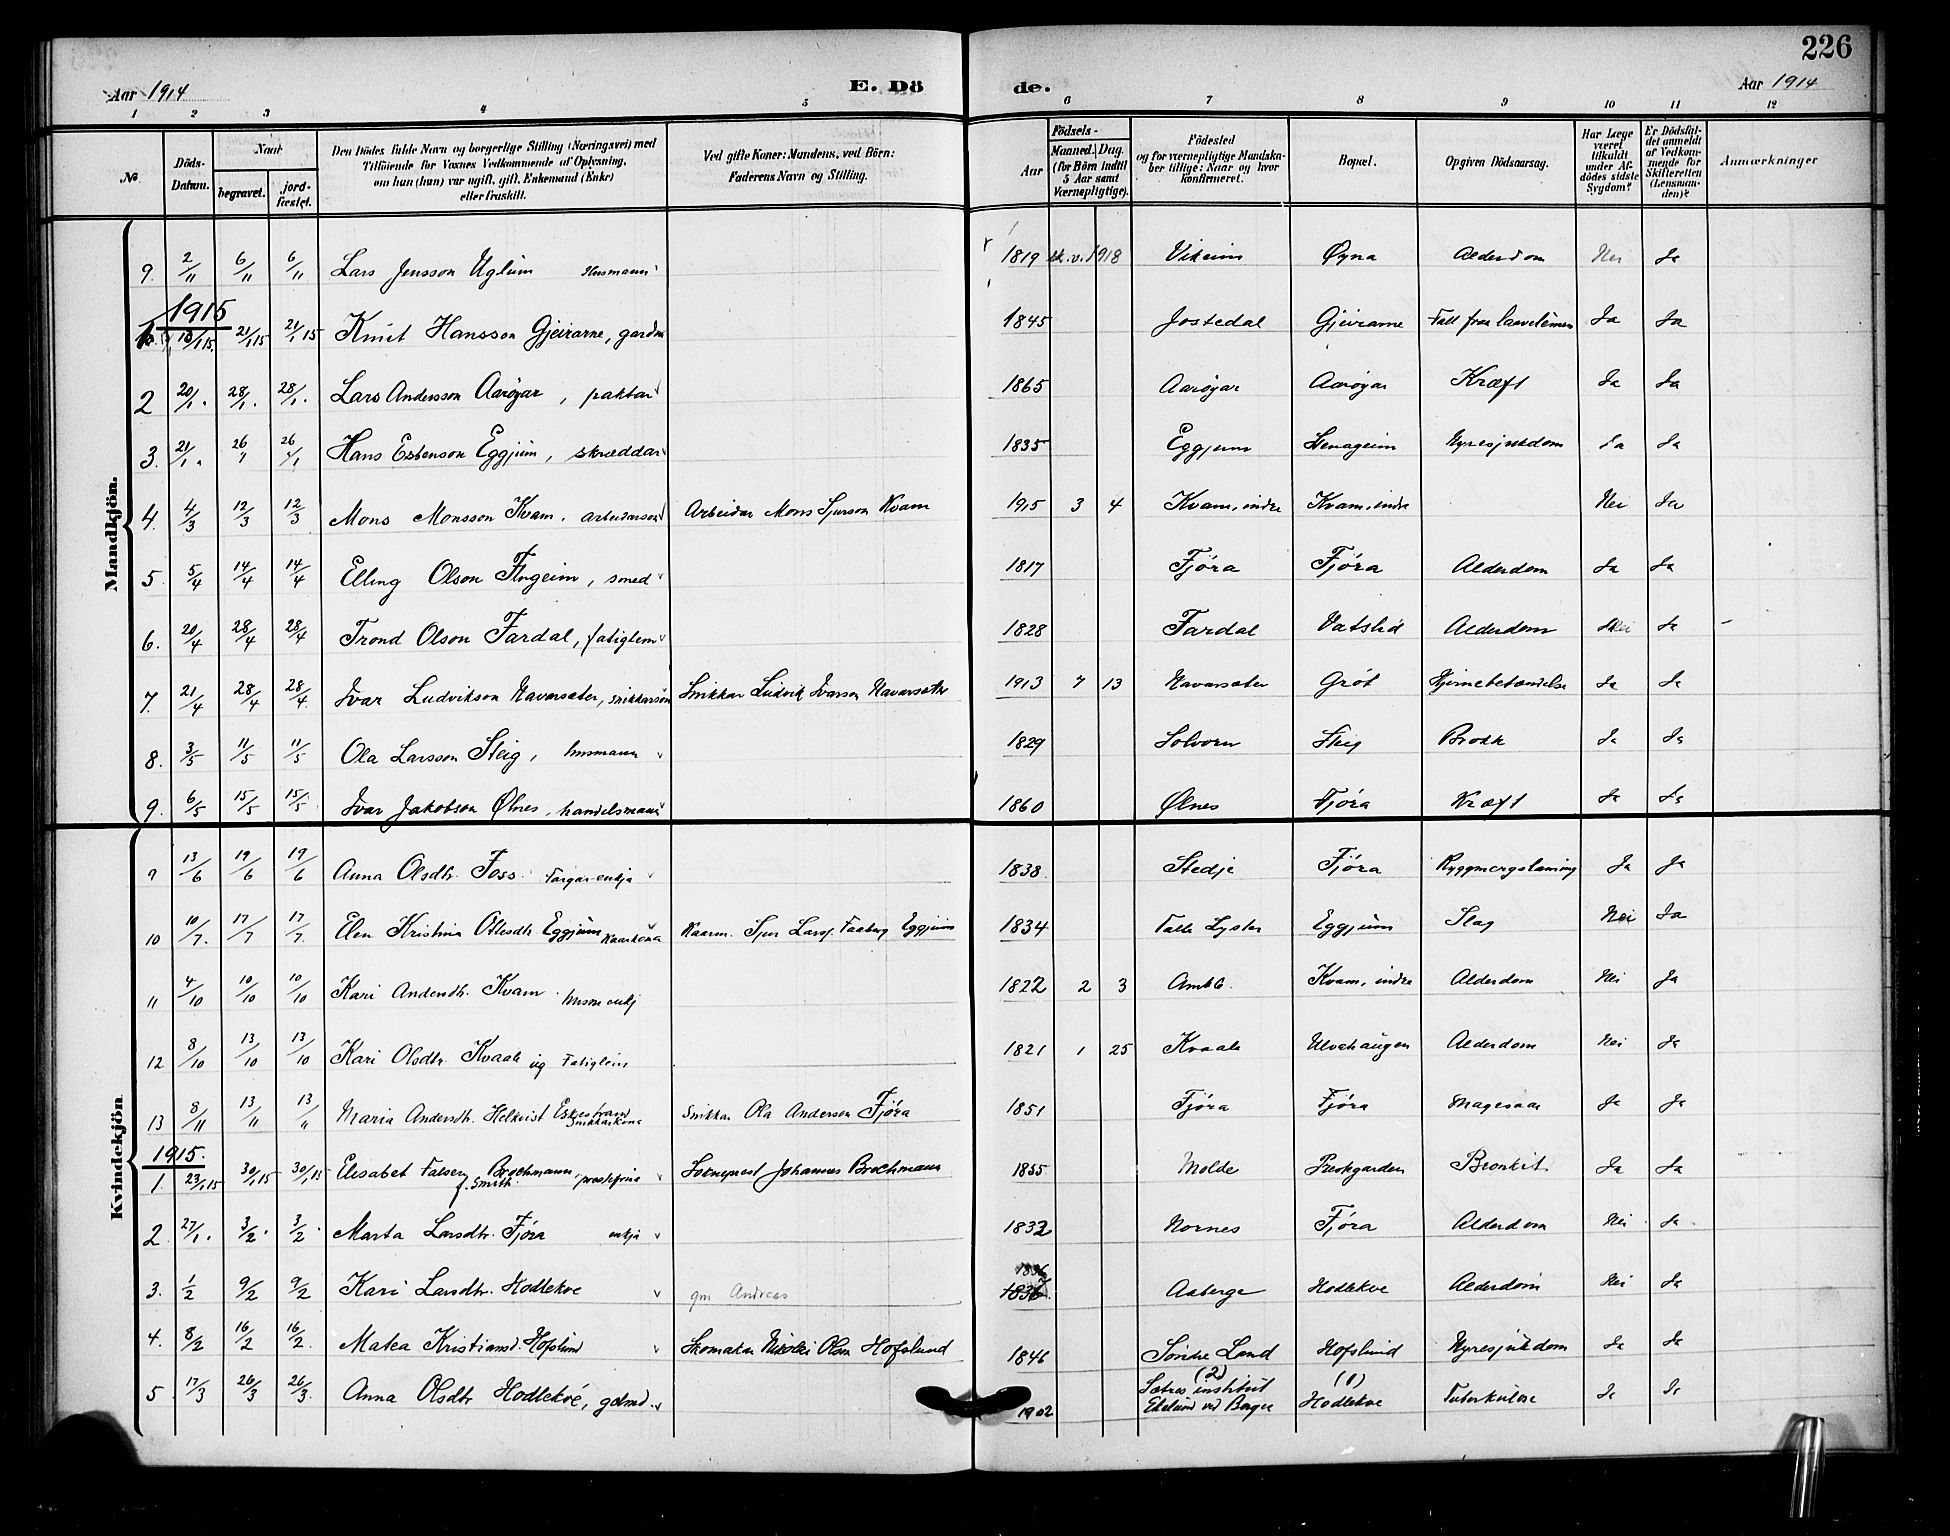 226
Aar 1914 E. Dö de. Aar 1914
1 2 3 4 5 6 7 8 9 10 11 12
No. Döds-Datum. Naar begravet. jord-fæstet. Den Dödes fulde Navn og borgerlige Stilling (Næringsvei) med Tilföiende for Voxnes Vedkommende af Oplysning, om han (hun) var ugift, gift, Enkemand (Enke) eller fraskilt. Ved gifte Koner: Mandens, ved Börn: Faderens Navn og Stilling. Födsels- Aar Maaned. Dag (for Börn indtil 5 Aar samt Værnepligtige). Födested og for værnepligtige Mandskaber tillige: Naar og hvor konfirmeret. Bopæl. Opgiven Dödsaarsag. Har Læge været tilkaldt under Afdödes sidste Sygdom? Er Dödsfaldet anmeldt af Vedkommende for Skifteretten (Lensmanden)? Anmærkninger
Mandkjön.
9. 2/11 6/11 6/11 Lars Jensson Uglum Husmann 1819 sk.v. 1918 Vikeim Øyna Alderdom Nei Ja
1915
1. 13/1 15. 21/1 15 21/1 15 Knut Hansson Gjeirarne, gardm 1845 Jostedal Gjeirarne Fall fraa laavelemen Ja Ja
2 20/1. 28/1. 28/1. Lars Andersson Aarøyar, faktar 1865 Aarøyar Aarøyar Kræft Ja Ja
3. 21/1. 26/1 26/1 Hans Esbenson Eggjum, skræddar 1835 Eggjum Stenageim Nyresjukdom Ja Ja
4. 4/3 12/3 12/3 Mons Monsson Kvam. arbeidarson Arbeidar Mons Sjurson Kvam 1915 3 4 Kvam, indre Kvam, indre Nei Ja
5 5/4 14/4 14/4 Elling Olson Flugeim, smed 1817 Fjøra Fjøra Alderdom Ja Ja
6. 20/4 28/4 28/4 Trond Olson Fardal, fatiglem 1828 Fardal Vatslid Alderdom Nei Ja
7. 21/4 28/4 28/4 Ivar Ludvikson Navarsæter, snikkarson Snikkar Ludvik Ivarson Navarsæter 1913 7 13 Navarsæter Grøt Hjernebetændelse Ja Ja
8. 3/5 11/5 11/5 Ola Larsson Steig, husmann 1829 Solvorn Steig Brokk Ja Ja
9. 6/5 15/5 15/5. Ivar Jakobson Ølnes, handelsmann 1860 Ølnes Fjøra Kræft Ja Ja
Kvindekjön
9 13/6 19/6 19/6 Anna Olsdtr. Foss. Fargar-enkja 1838. Stedje Fjøra Ryggmergstæring Ja Ja
10 10/7. 17/7 17/7. Elen Kristina Ottesdtr Eggjum Kaarkona Kaarm. Sjur Larss. Faaberg Eggjum 1834 Talle Lyster Eggjum Slag Nei Ja
11 4/10 10/10 10/10 Kari Andersdtr. Kvam. husm enkj 1822 2 3 Ambl. Kvam, indre Alderdom Nei Ja
12 8/10 13/10 13/10 Kari Olsdtr. Kvaale ug Fatiglem 1821 1 25 Kvaale Ulvehaugen Alderdom Nei Ja
13 8/11 13/11 13/11 Maria Andersdtr. Helkvist Eskestrand Snikkarkona Snikkar Ola Anderson Fjøra 1851 Fjøra Fjøra Magesaar Ja Ja
1915.
1. 23/1 15 30/1 15 30/1 15 Elisabet Falsen Brochmann, f. Smith. prestefrue Sokneprest Johannes Brochmann 1855 Molde Prestgarden Bronkit. Ja Ja
2 27/1. 3/2. 3/2. Marta Larsdtr. Fjøra enkja 1832 Nornes Fjøra Alderdom Nei Ja
3. 1/2 9/2 9/2 Kari Larsdtr. Hodlekve gm Andreas 1836 1836 Aaberge Hodlekve Alderdom Nei Ja
4. 8/2 16/2 16/2. Matea Kristiansd. Hofslund Skomakar Nikolai Olsen Hofslund 1846 Søndre Land Hofslund Nyresjukdom Ja Ja
5 17/3 26/3 26/3. Anna Olsdtr Hodlekve, gdmd. 1902 (2) Sætres institut Ekelund ved Bergen (1) Hodlekve Tuberkulose Ja Ja